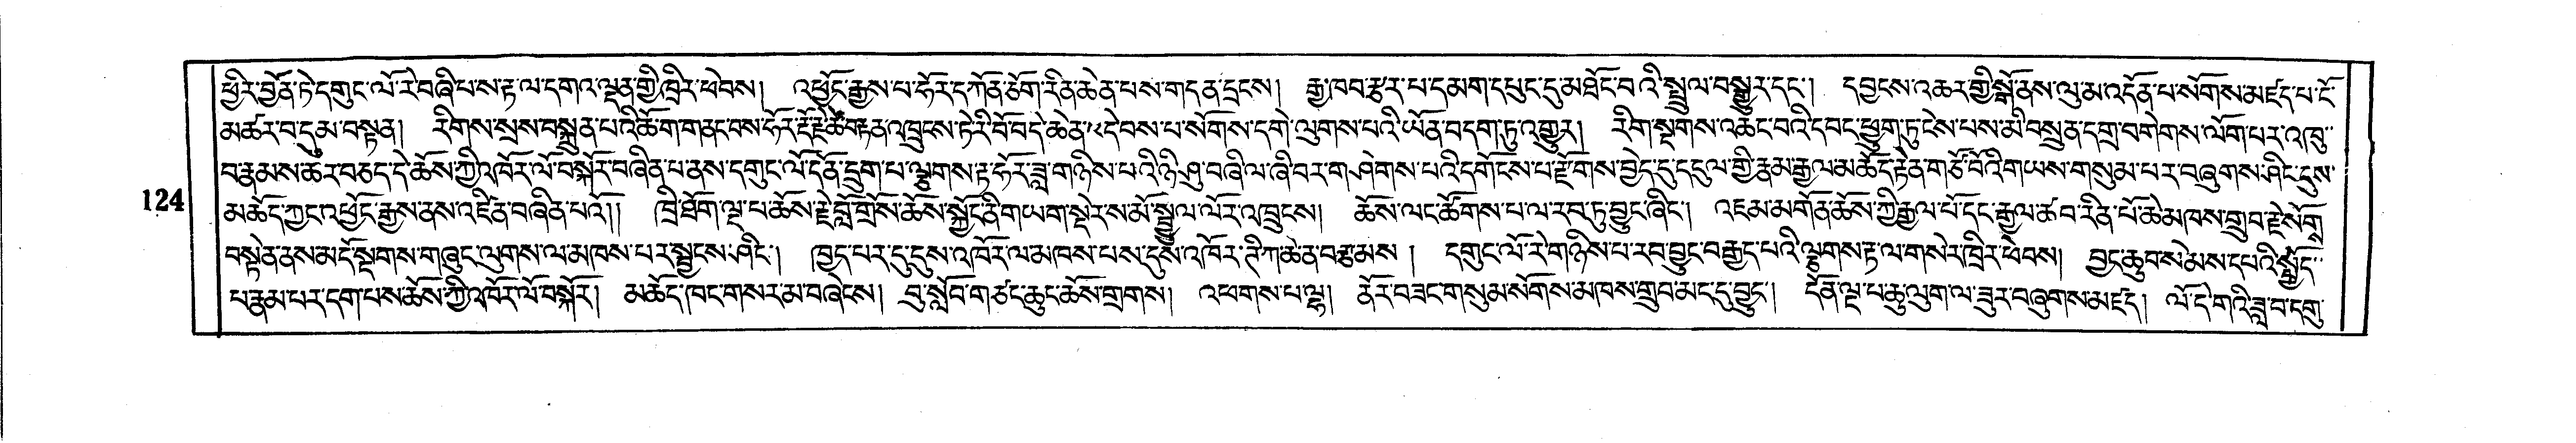 ཕྱིར་བྱོན་ཏེ་དགུང་ལོ་རེ་བཞི་པ་ས་རྟ་ལ་དགའ་ལྡན་གྱི་ཁྲིར་ཕེབས། འཕྱོང་རྒྱས་པ་ཧོར་དཀོན་ཅོག་རིན་ཆེན་པས་གདན་དྲངས། རྒྱ་ཁབ་རྩར་པ་དམག་དཔུང་དུ་མཐོང་བའི་སྤྲུལ་བསྒྱུར་དང་། དབྱངས་འཆར་གྱི་སྒོ་ནས་ལུ་མ་འདོན་པ་སོགས་མཛད་པ་ངོ་
མཚར་བ་དུ་མ་བསྟན། རིགས་སྲས་བསྐྲུན་པའི་ཆོ་ག་གནང་བས་ཧོར་རྡོ་རྗེ་ཚེ་བརྟན་འཁྲུངས་ཏེ་རི་བོ་བདེ་ཆེན་༥དེབས་པ་སོགས་དགེ་ལུགས་པའི་ཡོན་བདག་ཏུ་འགྱུར། རིག་སྔགས་འཆང་བའི་དབང་ཕྱུག་ཏུ་ངེས་པས་མི་བསྲུན་དགྲ་བགེགས་ལོག་པར་འཁུ་
བ་རྣམས་ཚར་བཅད་དེ་ཆོས་ཀྱི་འཁོར་ལོ་བསྐོར་བཞིན་པ་ནས་དགུང་ལོ་དོན་དྲུག་པ་ལྕགས་རྟ་ཧོར་ཟླ་གཉིས་པའི་ཉི་ཤུ་བཞི་ལ་ཞི་བར་གཤེགས་པའི་དགོངས་པ་རྫོགས་བྱེད་དུ་དངུལ་གྱི་རྣམ་རྒྱལ་མཆོད་རྟེན་གཙོ་བོའི་གཡས་གསུམ་པར་བཞུགས་ཤིང་དུས་
124
མཆོད་ཀྱང་འཕྱོང་རྒྱས་ནས་འཛིན་བཞིན་པའོ།། ཁྲི་ཐོག་ལྔ་པ་ཆོས་རྗེ་བློ་གྲོས་ཆོས་སྐྱོང་ནི་གཡག་སྡེར་ས་མོ་སྦྲུལ་ལོར་འཁྲུངས། ཆོས་ལང་ཚོགས་པ་ལ་རབ་ཏུ་བྱུང་ཞིང་། འཇམ་མགོན་ཆོས་ཀྱི་རྒྱལ་པོ་དང་རྒྱལ་ཚབ་རིན་པོ་ཆེ་མཁས་གྲུབ་རྗེ་སོགྶ
བསྟེན་ནས་མདོ་སྔགས་གཞུང་ལུགས་ལ་མཁས་པར་སྦྱངས་ཤིང་། ཁྱད་པར་དུ་དུས་འཁོར་ལ་མཁས་པས་དུས་འཁོར་ཊཱི་ཀ་ཆེན་བརྩམས། དགུང་ལོ་རེ་གཉིས་པ་རབ་བྱུང་བརྒྱད་པའི་ལྕགས་རྟ་ལ་གསེར་ཁྲིར་ཕེབས། བྱང་ཆུབ་སེམས་དཔའི་སྤྱོད་
པ་རྣམ་པར་དག་པས་ཆོས་ཀྱི་འཁོར་ལོ་བསྐོར། མཆོད་ཁང་གསར་མ་བཞེངས། བུ་སློབ་གཙང་ཆུང་ཆོས་གྲགས། འཕགས་པ་ལྷ། ནོར་བཟང་གསུམ་སོགས་མཁས་གྲུབ་མང་དུ་བྱུང་། དོན་ལྔ་པ་ཆུ་ལུག་ལ་ཟུར་བཞུགས་མཛད། ལོ་དེ་གའི་ཟླ་བ་དགུ་